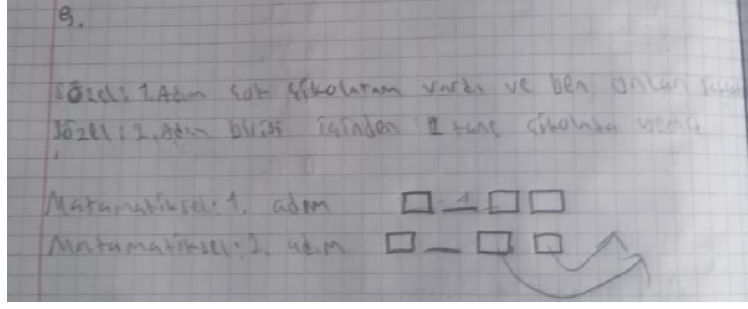 9.
Sözel: 1. Adım çok çikolatam vardı ve ben onları
Sözel: 2. Adım birisi içinden 1 tane çikolata yemiş
Matamatiksel: 1. adım □ — □ □
Matamatiksel: 2. adım □ — □ □